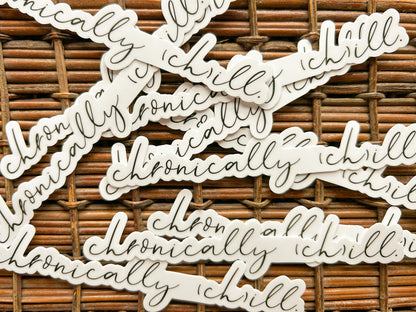 chronically chill.
chill.
chronically
chronically
chronically
chronically chill.
chronically
chronically chill.
chronically chill.